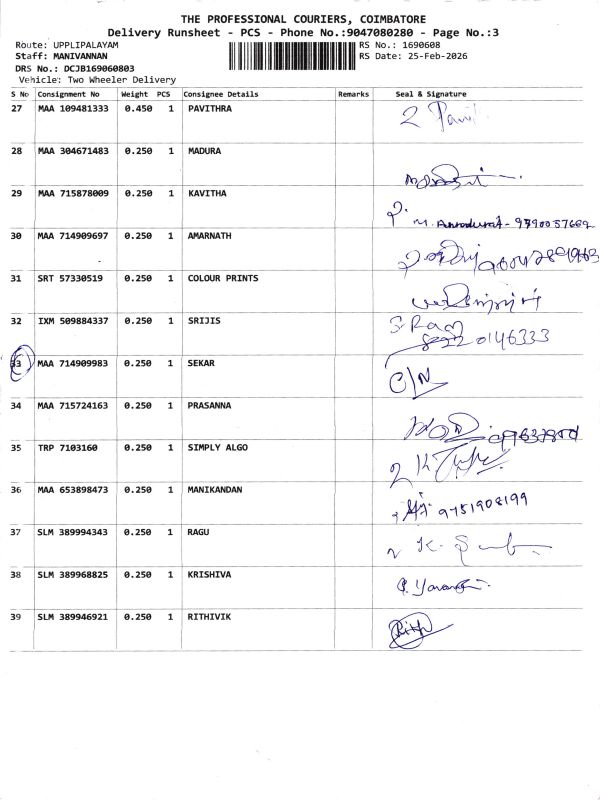 THE PROFESSIONAL COURIERS, COIMBATORE
Delivery Runsheet - PCS - Phone No.:9047080280 - Page No.:3
Route: UPPLIPALAYAM RS No.: 1690608
Staff: MANIVANNAN RS Date: 25-Feb-2026
DRS No.: DCJB169060803
Vehicle: Two Wheeler Delivery
S No Consignment No Weight PCS Consignee Details Remarks Seal & Signature
27 MAA 109481333 0.450 1 PAVITHRA
28 MAA 304671483 0.250 1 MADURA
29 MAA 715878009 0.250 1 KAVITHA
30 MAA 714909697 0.250 1 AMARNATH
31 SRT 57330519 0.250 1 COLOUR PRINTS
32 IXM 509884337 0.250 1 SRIJIS
33 MAA 714909983 0.250 1 SEKAR
34 MAA 715724163 0.250 1 PRASANNA
35 TRP 7103160 0.250 1 SIMPLY ALGO
36 MAA 653898473 0.250 1 MANIKANDAN 9751908199
37 SLM 389994343 0.250 1 RAGU
38 SLM 389968825 0.250 1 KRISHIVA
39 SLM 389946921 0.250 1 RITHIVIK